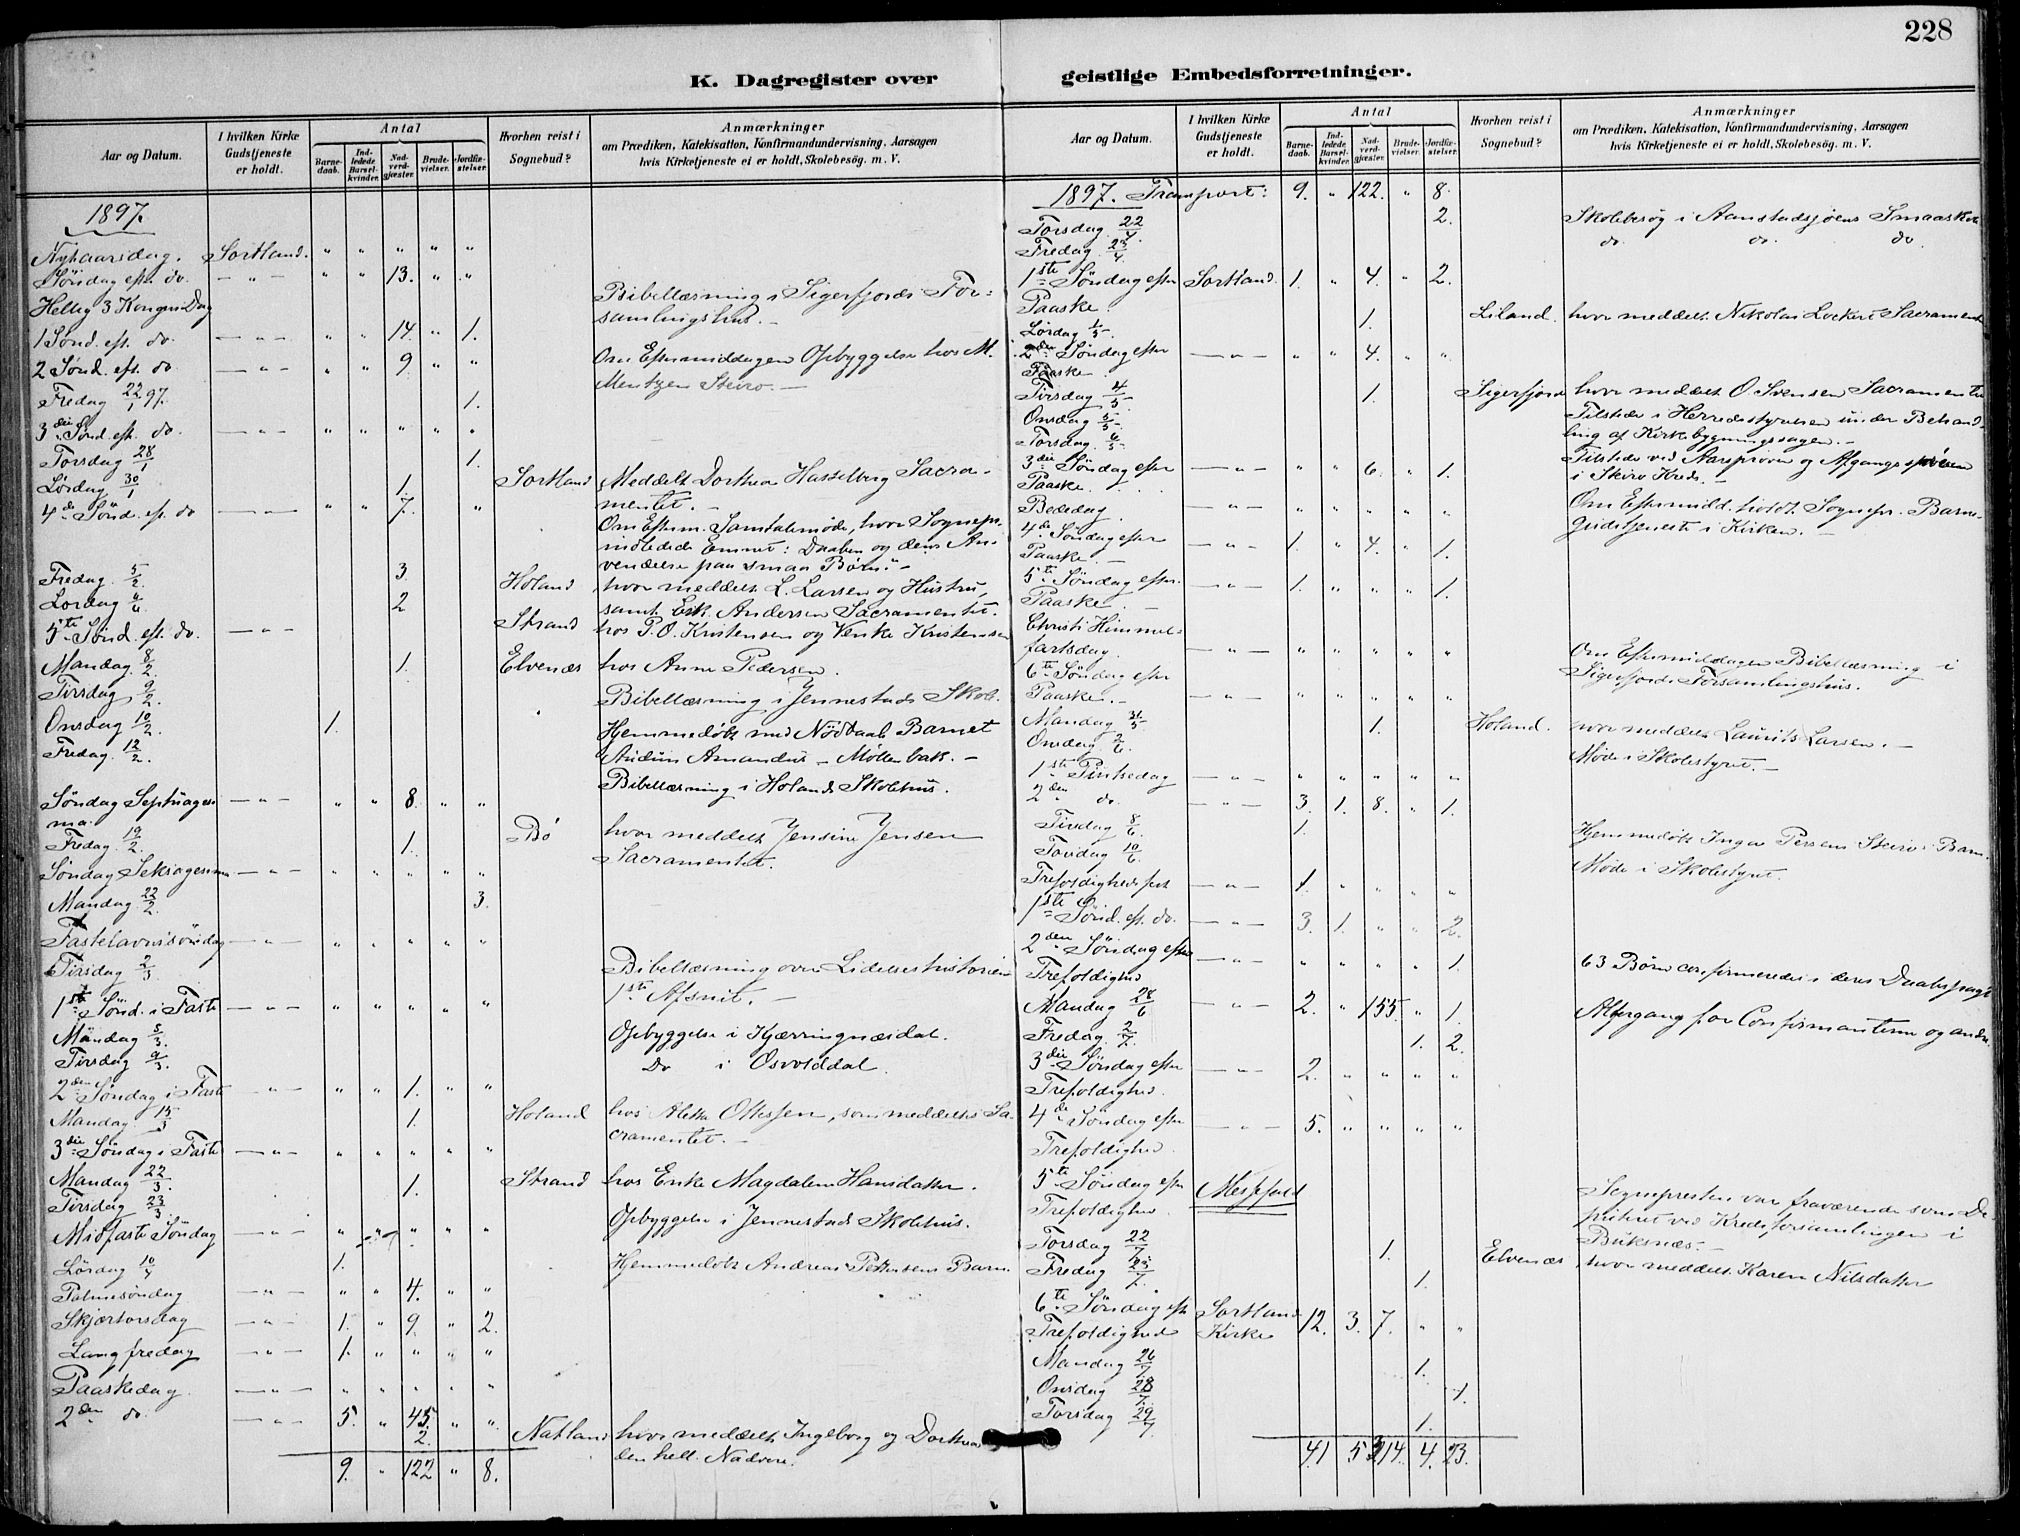 228
K. Dagregister over geistlige Embedsforretninger.
Aar og Datum. I hvilken Kirke Gudstjeneste er holdt. Antal Barnedaab. Indledede Barselkvinder. Nadverdgjæster. Brudevielser. Jordfæstelser. Hvorhen reist i Sognebud? Anmærkninger om Prædiken, Katekisation, Konfirmandundervisning, Aarsagen hvis Kirketjeneste ei er holdt, Skolebesög. m. V.
1897.
Nytaarsdag. Sortland. " " " " "
Söndag eft. do. — " — " " 13. " "
Hellig 3 Kongers Dag Bibellæsning i Sigerfjords For=
samlingshus. —
1 Sönd. eft. do. — " — " " 14. " 1.
2 Sönd. eft. do — " — " " 9 " " Om Eftermiddagen Opbyggelse hos M.
Mentzen Steiro. —
Fredag 22/1 97. 1.
3die Sönd. eft. do. — " — " " " " "
Torsdag 28/1 1.
Lördag 30/1 1. Sortland Meddelt Dorthea Hasselberg Sacra-
mentet. —
4de Sönd. ef. do — " — " " 7. " Om Efterm. Samtalemöde, hvor Sognepr.
indledede Emnet: Daaben og dens An-
vendelse paa smaa Börn. —
Fredag 5/2 3. Holand hvor meddelt L. Larsen og Hustru,
samt Enk. Andersen Sacramentet.
Lördag 6/6 2 Strand hos P. O. Kristensen og Venke Kristensen
5te Sönd. eft. do. — " —
Mandag 8/2. 1. Elvenæs hos Anne Pedersen.
Tirsdag 9/2. Bibellæsning i Jennestads Skole.
Onsdag 10/2. 1. Hjemmedöbt med Nöddaab Barnet
Audum Amandus — Möllenbak. —
Fredag 12/2. Bibellæsning i Holands Skolehus.
Söndag Septuagesi — " — " " 8. " "
ma.
Fredag 19/2. 1. Bö hvor meddelt Jensine Jensen
Sacramentet.
Söndag Seksagesima — " — " " " " "
Mandag 22/2. 3.
Fastelavnssöndag — " — " " " " "
Tirsdag 2/3 Bibellæsning over Lidelseshistorien
1ste Afsnit. —
1ste Sönd. i Faste — " — " " " " "
Mandag 8/3. Opbyggelse i Kjærringnæsdal.
Tirsdag 9/3. Do i Osvolddal.
2den Söndag i Faste — " — " " 1. " "
Mandag 15/3 1. Holand hos Aletta Ottessen, som meddeltes Sa-
cramentet. —
3die Söndag i Faste — " — " " " " "
Mandag 22/3. 1. Strand hos Enke Magdalena Hansdatter.
Tirsdag 23/3. Opbyggelse i Jennestads Skolehus.
Midfaste Söndag — " — " " " " "
Lördag 10/4 1. Hjemmedöbt Andreas Pettersens Barn
Palmesöndag — " — " " 4. " "
Skjærtorsdag — " — 1. " 9. " 2.
Langfredag — " — 1. " " " "
Paaskedag. — " — " " " " "
2den do. — " — 5. " 45. " "
2. Natland hvor meddelt Ingeborg og Dorthea
den hell. Nadvere.
9. " 122 " 8.
Aar og Datum. I hvilken Kirke Gudstjeneste er holdt. Antal Barnedaab. Indledede Barselkvinder. Nadverdgjæster. Brudevielser. Jordfæstelser. Hvorhen reist i Sognebud? Anmærkninger om Prædiken, Katekisation, Konfirmandundervisning, Aarsagen hvis Kirketjeneste ei er holdt, Skolebesög. m. V.
1897. Transport: 9. " 122. " 8.
Torsdag 22/4. 2. Skolebesög i Aanstadsjöens Smaaskole
Fredag 23/4. do. do. do.
1ste Söndag efter Sortland. 1. " 4. " 2.
Paaske.
Lördag 1/5. 1. Liland. hvor meddelt Nikolai Lockert Sacramentet
2den Söndag efter — " — " " 4. " "
Paaske.
Tirsdag 4/5 1. Sigerfjord hvor meddelt O. Svensen Sacramentet
Onsdag 5/5 Tilstede i Herredsstyrelsen under Behand-
ling af Kirkebygningssagen. —
Torsdag 6/5. Tilstede ved Aarspröven og Afgangspröven
i Steiro Kreds. —
3die Söndag efter — " — " " 6. " 1.
Paaske.
Bededag. — " — " " " " " Om Eftermidd. holdt Sognepr. Barne-
gudstjeneste i Kirken. —
4de Söndag efter — " — 1. " 4. " 1.
Paaske. —
5te Söndag efter — " — 1. " " " 1.
Paaske. —
Christi Himmel=
fartsdag. — " — " " " " " Om Eftermiddagen Bibellæsning i
Sigerfjords Forsamlingshus.
6te Söndag efter
Paaske. — — " — " " " " "
Mandag 31/5 1. Holand. hvor meddelt Laurits Larsen. —
Onsdag 2/6. Möde i Skolestyret. —
1ste Pintsedag — " — " " " " "
2den do. — " — 3. 1. 8. " 1.
Tirsdag 8/6. 1. Hjemmedöbt Ingav Persens Steiro Barn.
Torsdag 10/6. Möde i Skolestyret.
Trefoldighedsfest — " — 1. " " " "
1ste Sönd. eft. do. — " — 3. 1. " " 2.
2den Söndag efter
Trefoldighed — " — " " " " 1. 63 Börn confirmeredes i deres Daabspagt
Mandag 28/6 — " — 2. " 155. " 1. Altergang for Confirmanterne og andre.
Fredag 2/7. 1. 2.
3die Söndag efter — " — 2. " " " "
Trefoldighed.
4de Söndag efter — " — 5. " " " "
Trefoldighed.
5te Söndag efter Messefald Sognepresten var fraværende som De-
Trefoldighed. puteret ved Kredsforsamlingen i
Buksnæs. —
Torsdag 22/7. 1. Elvenæs, hvor meddelt Karen Nilsdatter
Fredag 23/7. 1.
6te Söndag eft Sortland 12. 3. 7. " "
Trefoldighed Kirke
Mandag 26/7. 1.
Onsdag 28/7. 1.
Torsdag 29/7. 1.
41 5 314. 4. 23.